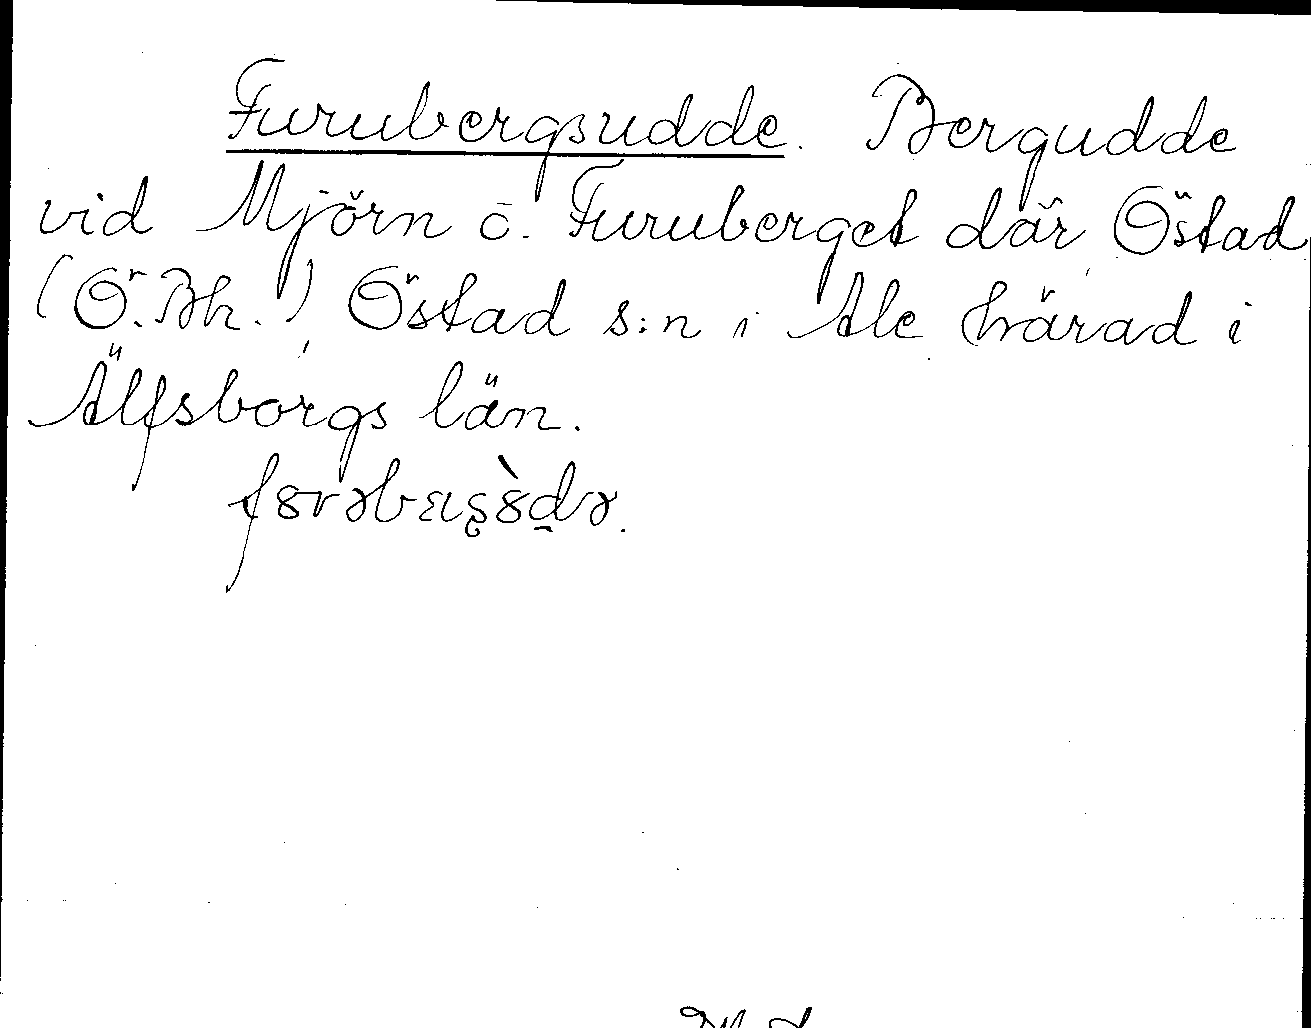 Furubergsudde. Bergudde
vid Mjörn ö. Furuberget där Östad
(Ö. Bh.) Östad s:n i Ale härad i
Älfsborgs län.